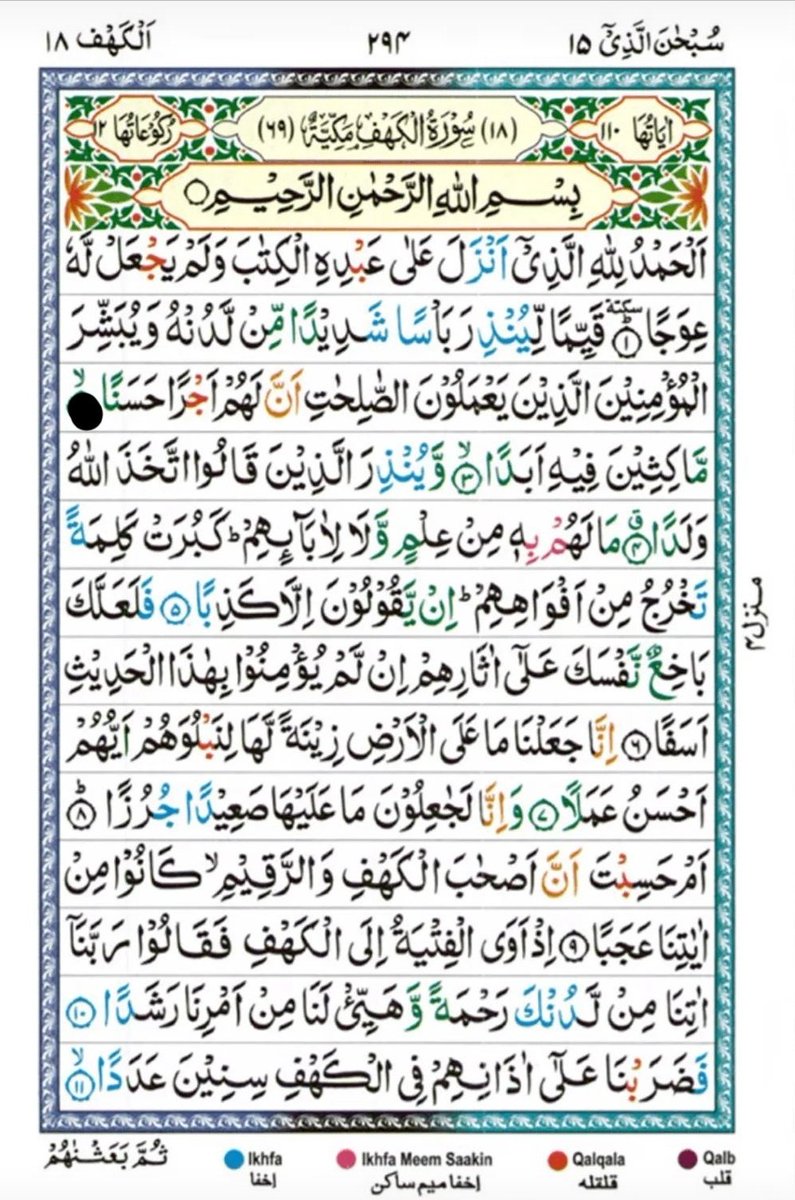 سُبْحٰنَ الَّذِیْۤ ۱۵
۲۹۴
اَلْكَهْف ۱۸
اٰیَاتُهَا ۱۱۰
(۱۸) سُوْرَةُ الْكَهْفِ مَكِّیَّةٌ (۶۹)
رُكُوْعَاتُهَا ۱۲
بِسْمِ اللّٰهِ الرَّحْمٰنِ الرَّحِیْمِ○
اَلْحَمْدُ لِلّٰهِ الَّذِیْۤ اَنْزَلَ عَلٰی عَبْدِهِ الْكِتٰبَ وَلَمْ یَجْعَلْ لَّهٗ
عِوَجًا ؕ سكتة ۱ قَیِّمًا لِّیُنْذِرَ بَاْسًا شَدِیْدًا مِّنْ لَّدُنْهُ وَیُبَشِّرَ
الْمُؤْمِنِیْنَ الَّذِیْنَ یَعْمَلُوْنَ الصّٰلِحٰتِ اَنَّ لَهُمْ اَجْرًا حَسَنًا ۙ
مَّاكِثِیْنَ فِیْهِ اَبَدًا ۙ ۳ وَّیُنْذِرَ الَّذِیْنَ قَالُوا اتَّخَذَ اللّٰهُ
وَلَدًا ۗ ۴ مَا لَهُمْ بِهٖ مِنْ عِلْمٍ وَّلَا لِاٰبَآىِٕهِمْ ؕ كَبُرَتْ كَلِمَةً
تَخْرُجُ مِنْ اَفْوَاهِهِمْ ؕ اِنْ یَّقُوْلُوْنَ اِلَّا كَذِبًا ۵ فَلَعَلَّكَ
بَاخِعٌ نَّفْسَكَ عَلٰۤی اٰثَارِهِمْ اِنْ لَّمْ یُؤْمِنُوْا بِهٰذَا الْحَدِیْثِ
اَسَفًا ۶ اِنَّا جَعَلْنَا مَا عَلَی الْاَرْضِ زِیْنَةً لَّهَا لِنَبْلُوَهُمْ اَیُّهُمْ
اَحْسَنُ عَمَلًا ۷ وَاِنَّا لَجٰعِلُوْنَ مَا عَلَیْهَا صَعِیْدًا جُرُزًا ؕ ۸
اَمْ حَسِبْتَ اَنَّ اَصْحٰبَ الْكَهْفِ وَالرَّقِیْمِ ۙ كَانُوْا مِنْ
اٰیٰتِنَا عَجَبًا ۹ اِذْ اَوَی الْفِتْیَةُ اِلَی الْكَهْفِ فَقَالُوْا رَبَّنَاۤ
اٰتِنَا مِنْ لَّدُنْكَ رَحْمَةً وَّهَیِّئْ لَنَا مِنْ اَمْرِنَا رَشَدًا ۱۰
فَضَرَبْنَا عَلٰۤی اٰذَانِهِمْ فِی الْكَهْفِ سِنِیْنَ عَدَدًا ۙ ۱۱
منزل ۴
ثُمَّ بَعَثْنٰهُمْ
Ikhfa
إخفا
Ikhfa Meem Saakin
إخفا میم ساكن
Qalqala
قلقله
Qalb
قلب